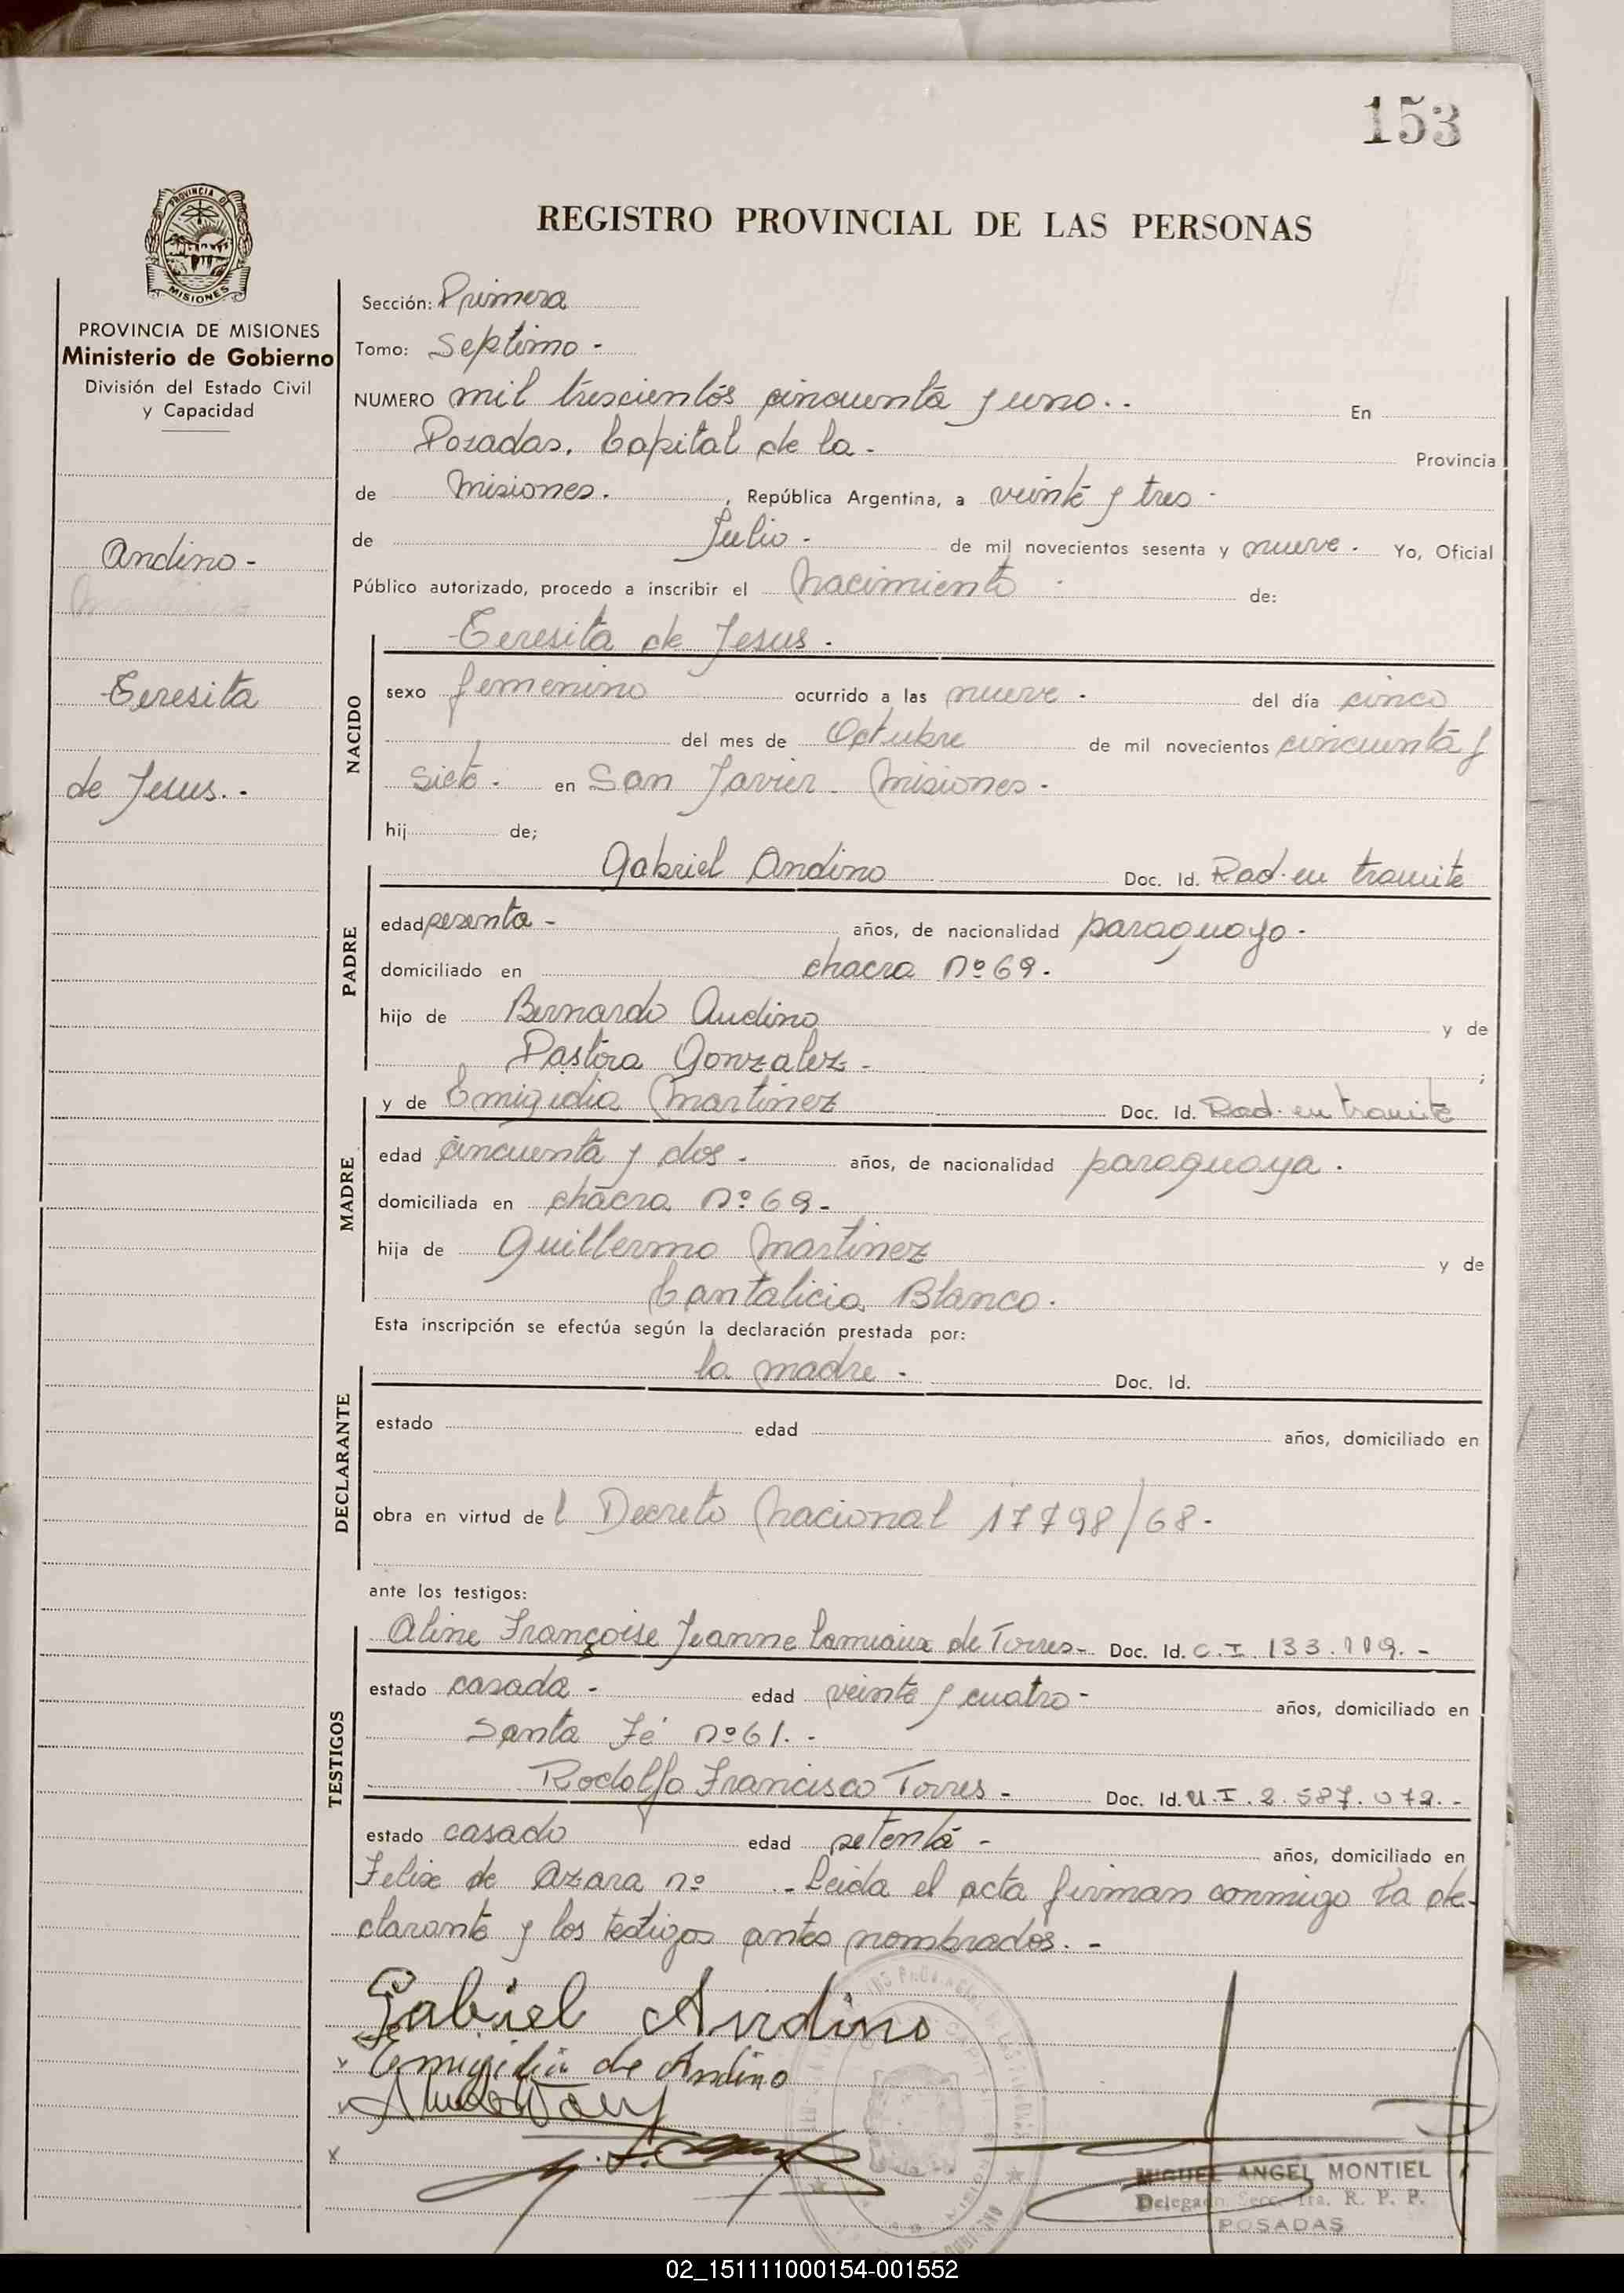 153
PROVINCIA DE
MISIONES
REGISTRO PROVINCIAL DE LAS PERSONAS
PROVINCIA DE MISIONES
Ministerio de Gobierno
División del Estado Civil
y Capacidad
Andino -
Teresita
de Jesus. -
Sección: Primera
Tomo: Septimo -
NUMERO mil trescientos cincuenta y uno. . En
Posadas, Capital de la - Provincia
de Misiones. , República Argentina, a veinte y tres -
de Julio - de mil novecientos sesenta y nueve - Yo, Oficial
Público autorizado, procedo a inscribir el Nacimiento - de:
NACIDO
Teresita de Jesus -
sexo femenino ocurrido a las nueve - del día cinco
del mes de Octubre de mil novecientos cincuenta y
siete - en San Javier - Misiones -
hij de;
PADRE
Gabriel Andino Doc. Id. Rad. en tramite
edad sesenta - años, de nacionalidad paraguayo -
domiciliado en chacra Nº 69.
hijo de Bernardo Andino y de
Pastora Gonzalez - ;
MADRE
y de Emigidia Martinez Doc. Id. Rad. en tramite
edad cincuenta y dos - años, de nacionalidad paraguaya .
domiciliada en chacra Nº 69 -
hija de Guillermo Martinez y de
Cantalicia Blanco .
Esta inscripción se efectúa según la declaración prestada por:
DECLARANTE
la madre - Doc. Id.
estado edad años, domiciliado en
obra en virtud del Decreto Nacional 17798/68 -
ante los testigos:
TESTIGOS
Aline Françoise Jeanne Lamiaux de Torres - Doc. Id. C. I. 133.119. -
estado casada - edad veinte y cuatro - años, domiciliado en
Santa Fé nº 61. -
Rodolfo Francisco Torres - Doc. Id. M. I. 2.587.072. -
estado casado edad setenta - años, domiciliado en
Felix de Azara nº - Leida el acta firman conmigo la de-
clarante y los testigos antes nombrados. -
Gabriel Andino
Emigidia de Andino
MIGUEL ANGEL MONTIEL
Delegado Secc. 1ra. R. P. P.
POSADAS
02_151111000154-001552